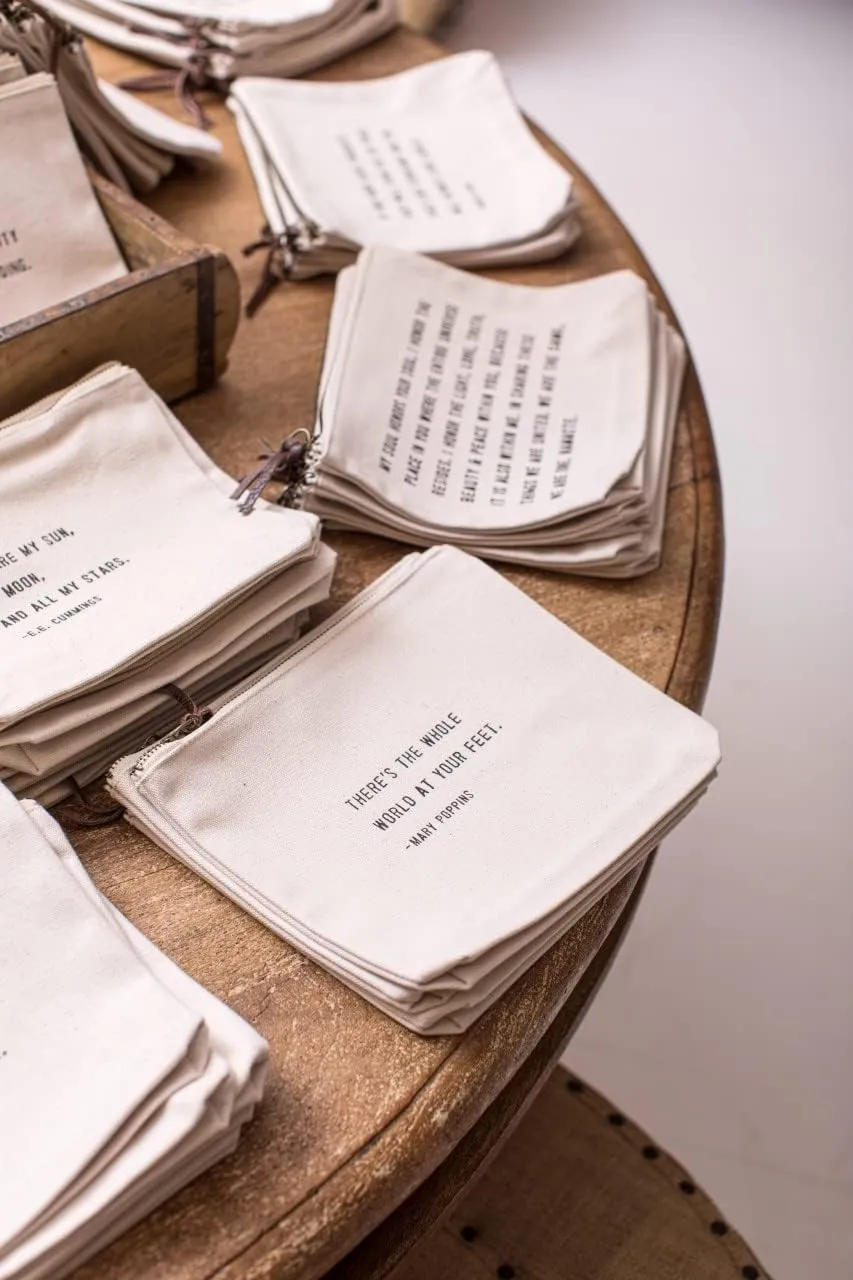 TY
DING.
MY SOUL HONORS YOUR SOUL. I HONOR THE
PLACE IN YOU WHERE THE ENTIRE UNIVERSE
RESIDES. I HONOR THE LIGHT, LOVE, TRUTH,
BEAUTY & PEACE WITHIN YOU, BECAUSE
IT IS ALSO WITHIN ME. IN SHARING THESE
THINGS WE ARE UNITED, WE ARE THE SAME,
WE ARE ONE. NAMASTE.
RE MY SUN,
MOON,
AND ALL MY STARS.
-E.E. CUMMINGS
THERE'S THE WHOLE
WORLD AT YOUR FEET.
-MARY POPPINS